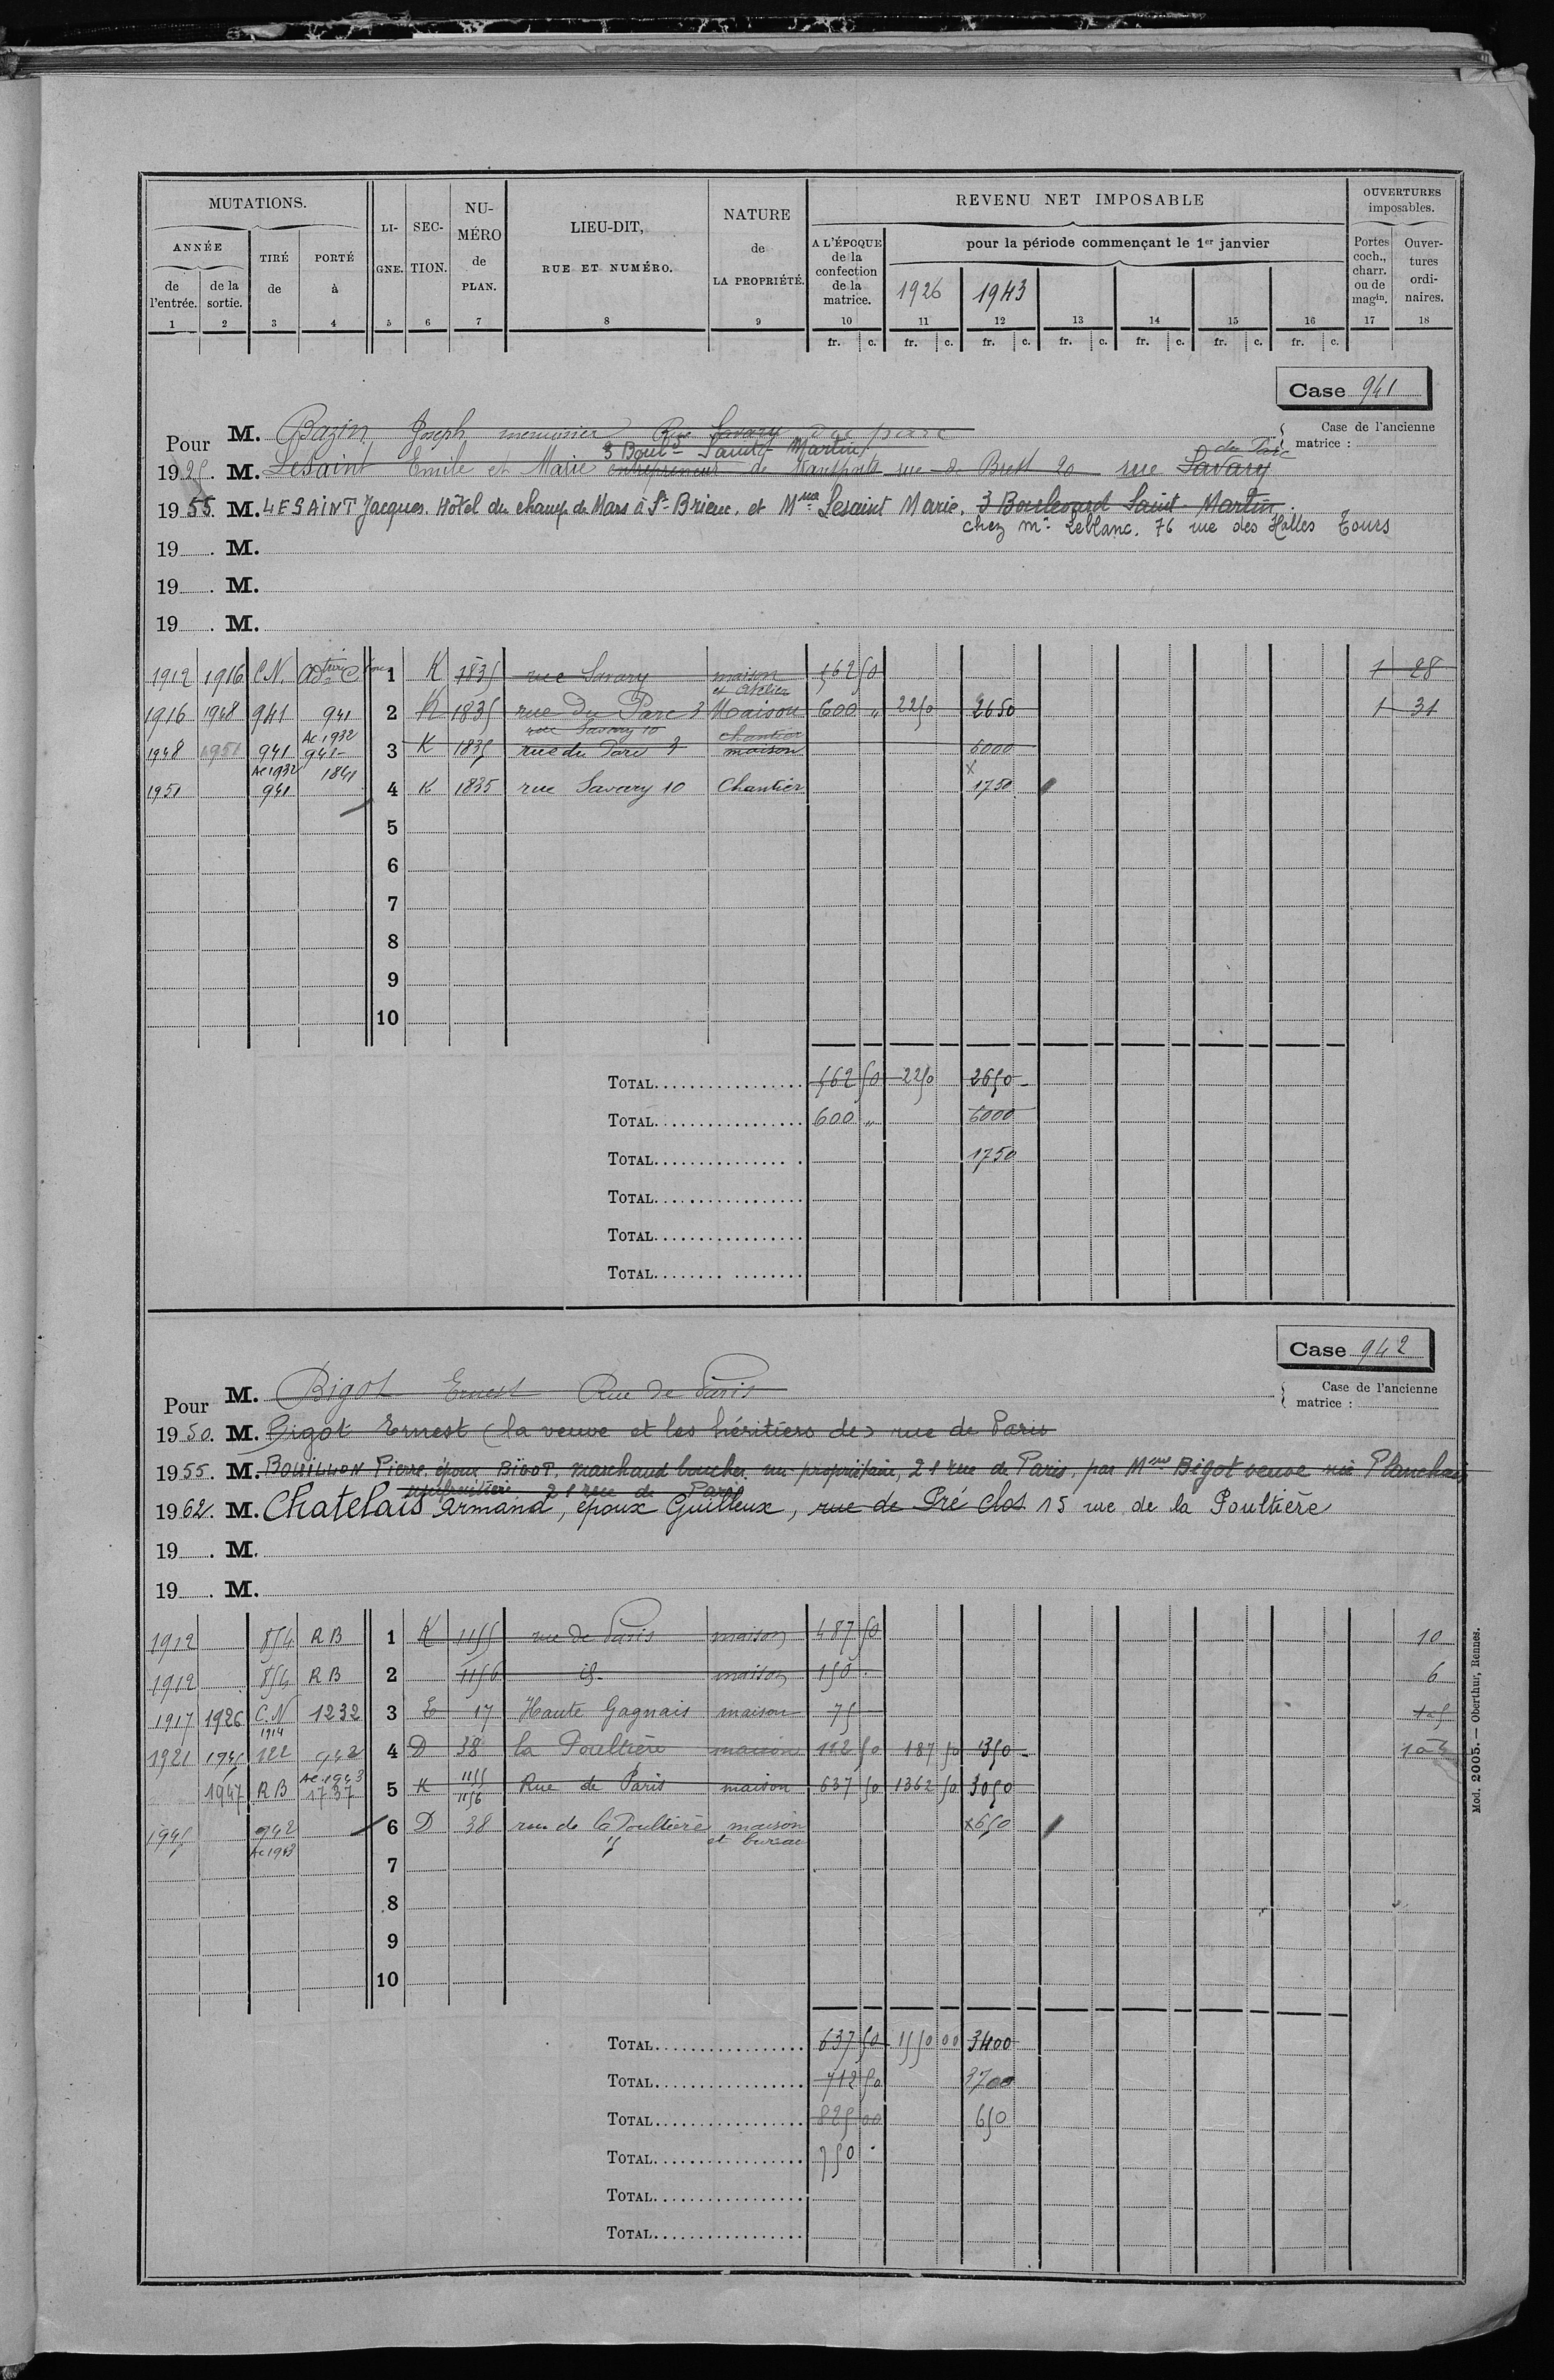 MUTATIONS. LI- SEC- NU- LIEU-DIT, NATURE REVENU NET IMPOSABLE OUVERTURES
ANNÉE TIRÉ PORTÉ GNE. TION. MÉRO RUE ET NUMÉRO. de A L'ÉPOQUE pour la période commençant le 1er janvier imposables.
de l'entrée. de la sortie. de à de PLAN. LA PROPRIÉTÉ. de la confection de la matrice. 1926 1943 Portes coch., charr. ou de magin. Ouver- tures ordi- naires.
1 2 3 4 5 6 7 8 9 10 11 12 13 14 15 16 17 18
fr. c. fr. c. fr. c. fr. c. fr. c. fr. c. fr. c.
Case 941
Pour M. Bazin Joseph menuisier Rue Savary du parc
Case de l'ancienne matrice :
3 Bould Saint Martin du Parc
1925. M. Lesaint Emile et Marie entrepreneur de transports rue de Brest 20 rue Savary
1955. M. LESAINT Jacques. Hôtel du champ de Mars à St-Brieuc. et Mme Lesaint Marie. 3 Boulevard Saint-Martin.
chez Mr Leblanc. 76 rue des Halles Tours
19 . M.
19 . M.
19 . M.
1912 1916 C.N. 1 K 1835 rue Savary maison 562 50 1 28
et atelier
1916 1948 941 941 2 K 1835 rue du Parc 3 Maison 600 " 2250 2650 1 31
Ac 1932 rue Savary 10 chantier
1948 1951 941 941 3 K 1835 rue du Parc 3 maison 6000
Ac 1932 1841 x
1951 941 4 K 1835 rue Savary 10 Chantier 1750
5
6
7
8
9
10
TOTAL 562 50 2250 2650
TOTAL 600 " 6000
TOTAL 1750
TOTAL
TOTAL
TOTAL
Case 942
Pour M. Bigot Ernest Rue de Paris
Case de l'ancienne matrice :
1950. M. Bigot Ernest (la veuve et les héritiers de) rue de Paris
1955. M. BOUILLON Pierre. époux BIGOT. marchand boucher. nu propriétaire, 21 rue de Paris, par Mme Bigot veuve née Planchais
usufruitière 21 rue de Paris
1962. M. Chatelais Armand, époux Guilleux, rue de Pré Clos 15 rue de la Poultière
19 . M.
19 . M.
1912 854 RB 1 K 1155 rue de Paris maison 487 50 10
1912 854 RB 2 1156 id. maison 150 . 6
1917 1926 C.N 1232 3 E 17 Haute Gagnais maison 75
1914
1921 1945 122 942 4 D 38 la Poultière maison 112 50 187 50 350
Ac 1943
1947 RB 1737 5 K 1155 1156 Rue de Paris maison 637 50 1362 50 3050
1945 942 6 D 38 rue de la Poultière maison x 650
Ac 1943 et bureau
7
8
9
10
TOTAL 637 50 1550 00 3400
TOTAL 712 50 3700
TOTAL 825 00 650
TOTAL 750 .
TOTAL
TOTAL
Mod. 2005. — Oberthur, Rennes.